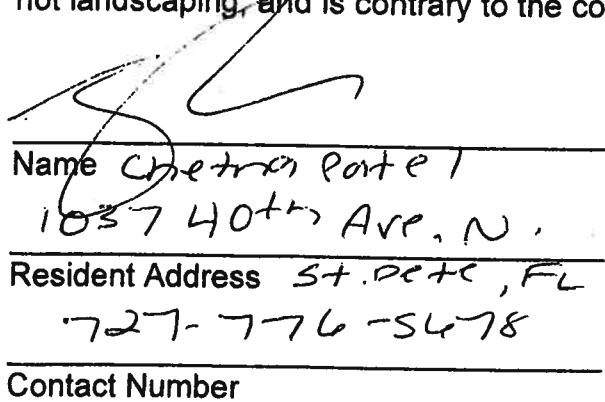 not landscaping, and is contrary to the co
Name Chetna Patel
1037 40th Ave. N.
Resident Address St. Pete, FL
727-776-5678
Contact Number